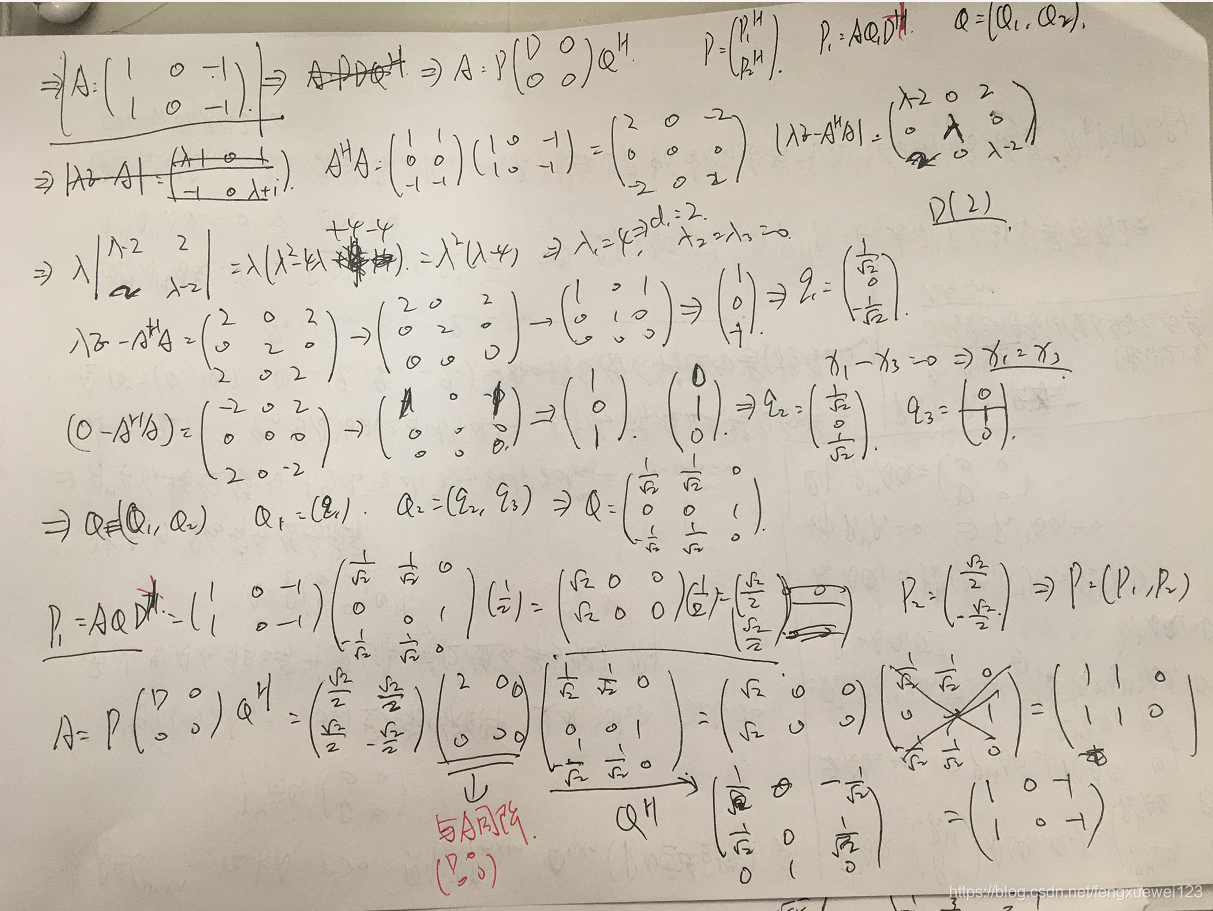 ⇒ A = (1 0 -1; 1 0 -1) ⇒ A=PDQ^H ⇒ A = P(D 0; 0 0)Q^H. P=(P₁^H; P₂^H). P₁=AQ₁D^H. Q=(Q₁, Q₂).
⇒ A^HA = (1 1; 0 0; -1 -1)(1 0 -1; 1 0 -1) = (2 0 -2; 0 0 0; -2 0 2) |λI-A^HA| = (λ-2 0 2; 0 λ 0; 2 0 λ-2)
D(2)
⇒ λ|λ-2 2; 2 λ-2| = λ(λ²-4λ+4-4) = λ²(λ-4) ⇒ λ₁=4 ⇒ d₁=2. λ₂=λ₃=0.
λI-A^HA = (2 0 2; 0 2 0; 2 0 2) → (2 0 2; 0 2 0; 0 0 0) → (1 0 1; 0 1 0; 0 0 0) ⇒ (1; 0; -1). ⇒ q₁ = (1/√2; 0; -1/√2).
x₁-x₃=0 ⇒ x₁=x₃
(0-A^HA) = (-2 0 2; 0 0 0; 2 0 -2) → (1 0 -1; 0 0 0; 0 0 0) ⇒ (1; 0; 1). (0; 1; 0) ⇒ q₂ = (1/√2; 0; 1/√2). q₃ = (0; 1; 0).
⇒ Q=(Q₁, Q₂) Q₁=(q₁). Q₂=(q₂, q₃) ⇒ Q = (1/√2 1/√2 0; 0 0 1; -1/√2 1/√2 0).
P₁=AQD^H = (1 0 -1; 1 0 -1)(1/√2 1/√2 0; 0 0 1; -1/√2 1/√2 0)(1/2) = (√2 0 0; √2 0 0)(1/2) = (√2/2; √2/2) P₂ = (√2/2; -√2/2) ⇒ P=(P₁, P₂)
A = P(D 0; 0 0)Q^H = (√2/2 √2/2; √2/2 -√2/2)(2 0 0; 0 0 0)(1/√2 1/√2 0; 0 0 1; -1/√2 1/√2 0) = (√2 0 0; √2 0 0)(1/√2 1/√2 0; 0 1; -1/√2 1/√2 0) = (1 1 0; 1 1 0)
与A同阶.
(D 0; 0 0)
Q^H
(1/√2 0 -1/√2; 1/√2 0 1/√2; 0 1 0) = (1 0 -1; 1 0 -1)
https://blog.csdn.net/fengxuewei123